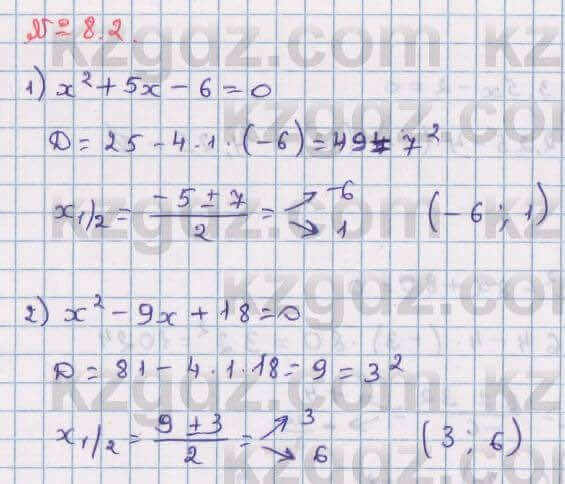 № 8.2.
1) x² + 5x - 6 = 0
D = 25 - 4·1·(-6) = 49 = 7²
x₁/₂ = (-5 ± 7)/2 = ↗ -6 ↘ 1 (-6; 1)
2) x² - 9x + 18 = 0
D = 81 - 4·1·18 = 9 = 3²
x₁/₂ = (9 ± 3)/2 = ↗ 3 ↘ 6 (3; 6)
kzgdz.com